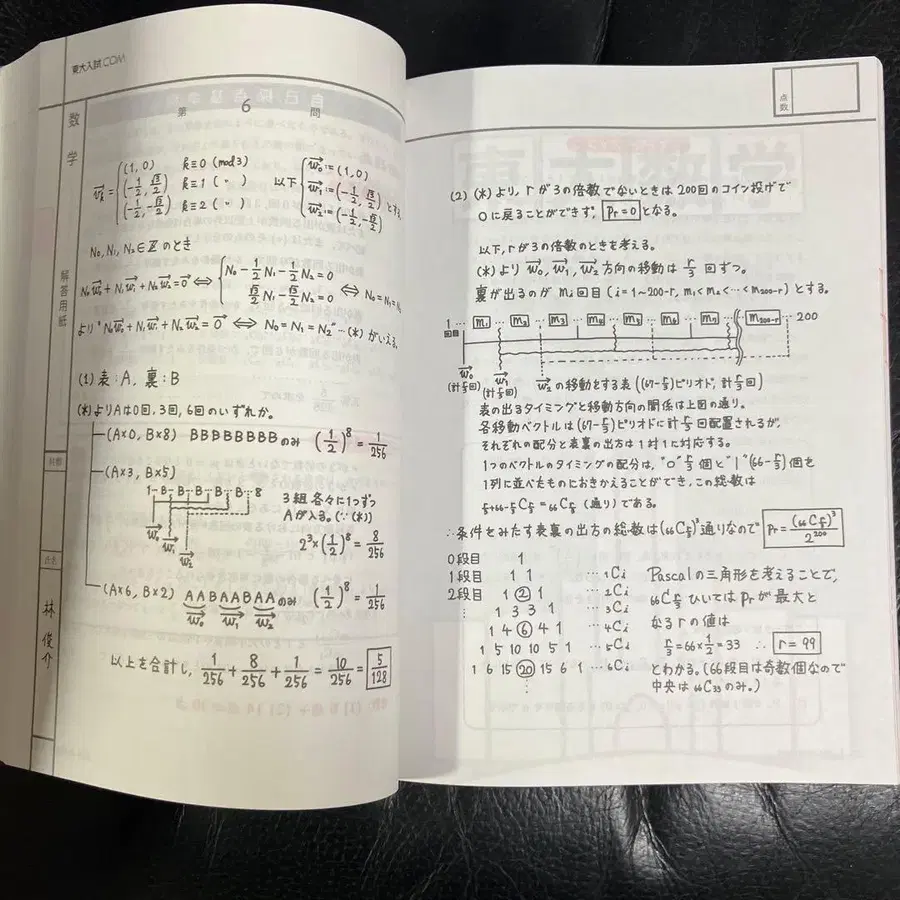 東大入試.COM
数学
第 6 問
解答用紙
科類
氏名
林 俊介
v⃗k = { (1, 0) k≡0 (mod 3)
(-1/2, √3/2) k≡1 ( 〃 )
(-1/2, -√3/2) k≡2 ( 〃 )
以下 { w⃗0 := (1, 0)
w⃗1 := (-1/2, √3/2)
w⃗2 := (-1/2, -√3/2) とする。
N0, N1, N2 ∈ ℤ のとき
N0w⃗0 + N1w⃗1 + N2w⃗2 = 0⃗ ⇔ { N0 - 1/2 N1 - 1/2 N2 = 0
√3/2 N1 - √3/2 N2 = 0 ⇔ N0 = N1 = N
より "N0w⃗0 + N1w⃗1 + N2w⃗2 = 0⃗ ⇔ N0 = N1 = N2" … (*) がいえる。
(1) 表:A, 裏:B
(*)よりAは0回, 3回, 6回のいずれか。
(A×0, B×8) BBBBBBBB のみ (1/2)^8 = 1/256
(A×3, B×5)
1-B-B-B-B-B-8
w⃗0 w⃗1 w⃗2
3組 各々に1つずつ
Aが入る。(∵(*))
2^3 × (1/2)^8 = 8/256
(A×6, B×2) AABAABAA のみ (1/2)^8 = 1/256
w⃗0 w⃗1 w⃗2
以上を合計し, 1/256 + 8/256 + 1/256 = 10/256 = 5/128
点数
(2) (*)より, rが3の倍数でないときは200回のコイン投げで
0に戻ることができず, Pr=0 となる。
以下, rが3の倍数のときを考える。
(*)より w⃗0, w⃗1, w⃗2 方向の移動は r/3 回ずつ。
裏が出るのが mi回目 (i=1~200-r, m1<m2<…<m200-r) とする。
1 … m1 … m2 … m3 … m4 … m5 … m6 … m7 … m200-r … 200
回目
w⃗0 (計r/3回)
w⃗1 (計r/3回)
w⃗2 の移動をする表 ((67-r/3)ピリオド, 計r/3回)
表の出るタイミングと移動方向の関係は上図の通り。
各移動ベクトルは (67-r/3)ピリオドに計r/3回配置されるが,
それぞれの配分と表裏の出方は1対1に対応する。
1つのベクトルのタイミングの配分は, "0" r/3個と"|"(66-r/3)個を
1列に並べたものにおきかえることができ, この総数は
r/3+66-r/3Cr/3 = 66Cr/3 (通り) である。
∴ 条件をみたす表裏の出方の総数は (66Cr/3)^3 通りなので Pr = (66Cr/3)^3 / 2^200
0段目 1
1段目 1 1 … 1Ci
2段目 1 2 1 … 2Ci
1 3 3 1 … 3Ci
1 4 6 4 1 … 4Ci
1 5 10 10 5 1 … 5Ci
1 6 15 20 15 6 1 … 6Ci
⋮
Pascalの三角形を考えることで,
66Cr/3 ひいては Pr が最大と
なる r の値は
r/3 = 66 × 1/2 = 33 ∴ r = 99
とわかる。(66段目は奇数個なので
中央は 66C33 のみ。)